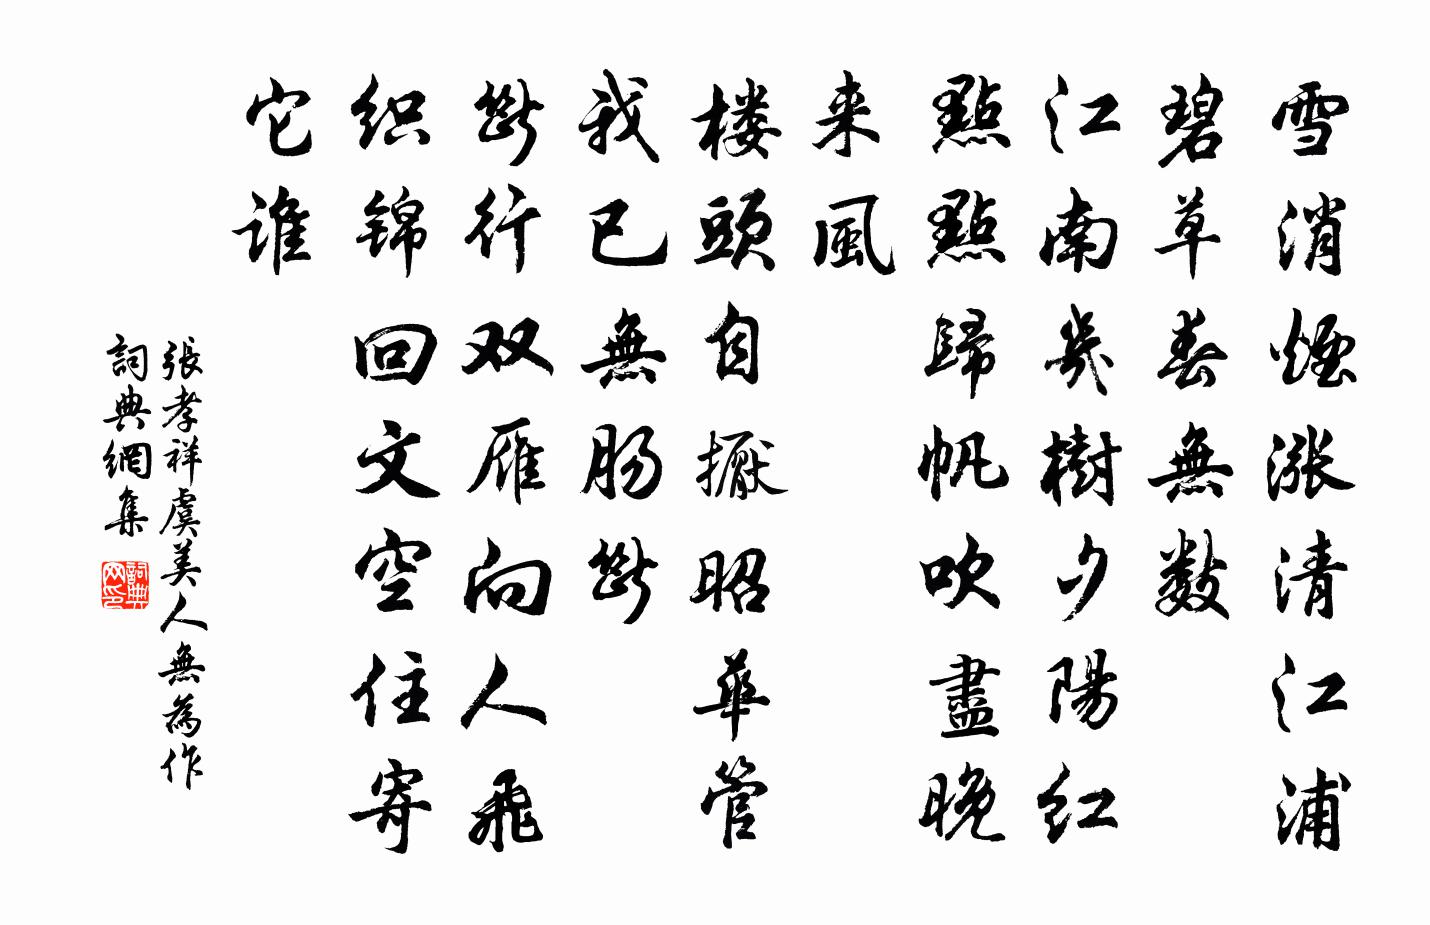 雪消煙漲清江浦
碧草春無數
江南幾樹夕陽红
點點歸帆吹盡晚
来風
楼頭自擫昭華管
我已無肠斷
斷行双雁向人飛
织锦回文空住寄
它谁
張孝祥虞美人無為作
詞典網集
詞典網印